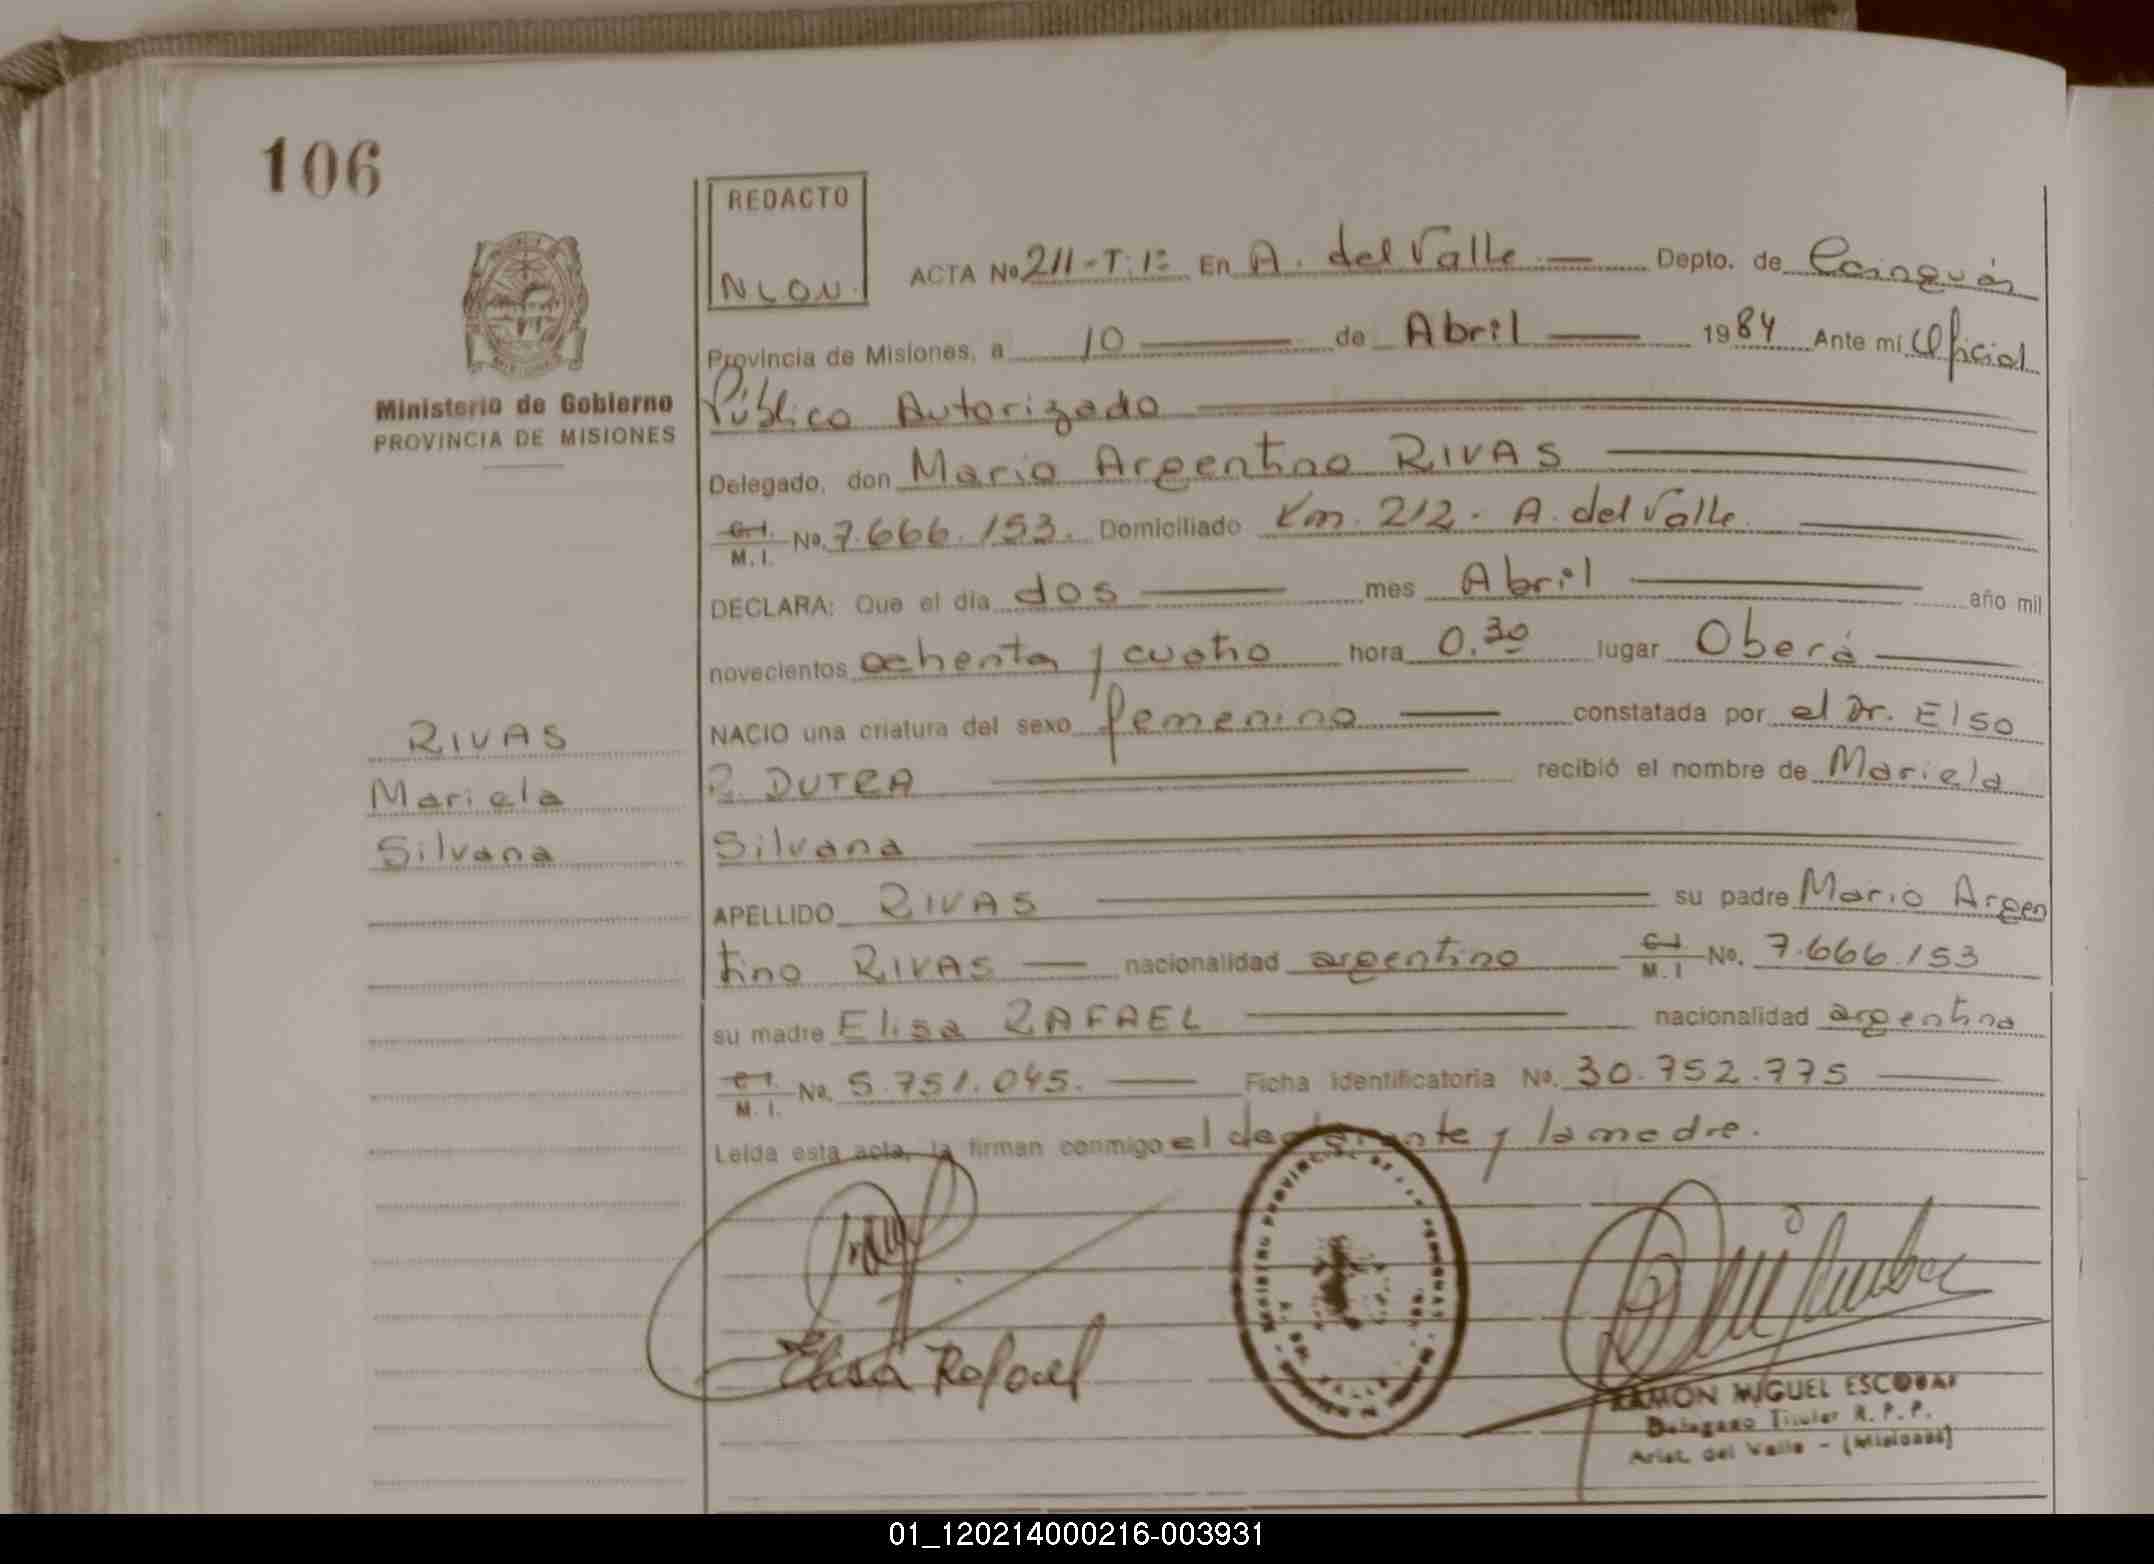 106
REDACTO
NLON.
Ministerio de Gobierno
PROVINCIA DE MISIONES
ACTA No 211-T:1º En A. del Valle Depto. de Cainguás
Provincia de Misiones, a 10 de Abril 1984 Ante mi Oficial
Público Autorizado
Delegado, don Mario Argentino RIVAS
C.I. M.I. No. 7.666.153. Domiciliado Km. 212 - A. del Valle.
DECLARA: Que el día dos mes Abril año mil
novecientos ochenta y cuatro hora 0.30 lugar Oberá
NACIO una criatura del sexo femenino constatada por el Dr. Elso
R. DUTRA recibió el nombre de Mariela
Silvana
RIVAS
Mariela
Silvana
APELLIDO RIVAS su padre Mario Argen
tino RIVAS nacionalidad argentino C.I. M.I No. 7.666.153
su madre Elisa RAFAEL nacionalidad argentina
C.I. M.I. No. 5.751.045. Ficha identificatoria No. 30.752.775
Leída esta acta, la firman conmigo el declarante y la madre.
Elisa Rafael
REGISTRO PROVINCIAL DE PERSONAS
RAMON MIGUEL ESCOBAR
Delegado Titular R. P. P.
Arist. del Valle - (Misiones)
01_120214000216-003931